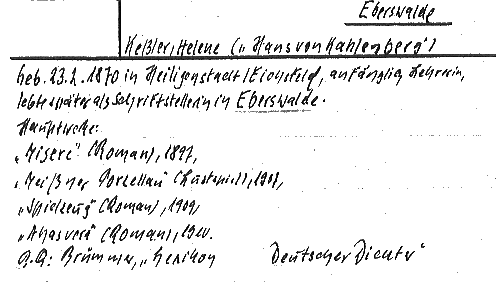 Eberswalde
Keßler, Helene („Hans von Kahlenberg")
Geb. 23.2.1870 in Heiligenstadt/Eichsfeld, anfänglich Lehrerin,
lebte später als Schriftstellerin in Eberswalde.
Hauptwerke:
„Misere" (Roman), 1897,
„Meißner Porzellan" (Lustspiel), 1901,
„Spielzeug" (Roman), 1909,
„Ahasvera" (Roman), 1910.
Brümmer, „Lexikon Deutscher Dichter"